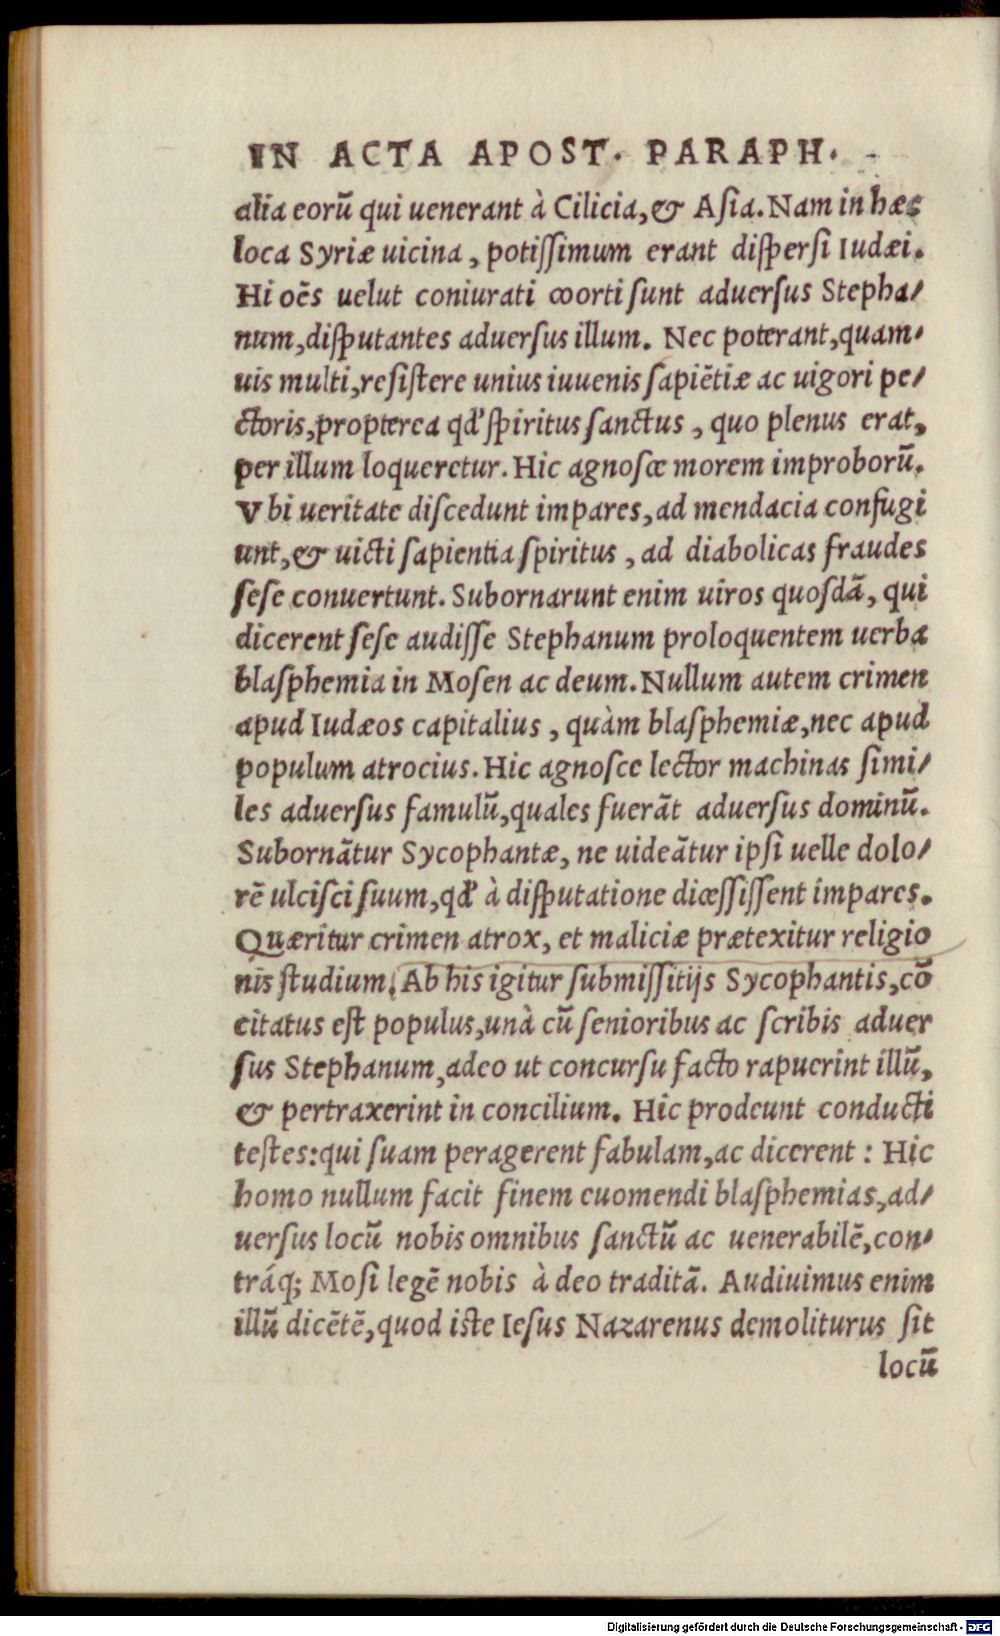 IN ACTA APOST. PARAPH.
alia eorũ qui uenerant à Cilicia,& Aſia.Nam in hæc
loca Syriæ uicina, potiſſimum erant diſperſi Iudæi.
Hi oẽs uelut coniurati coorti ſunt aduerſus Stepha/
num,diſputantes aduerſus illum. Nec poterant,quam/
uis multi,reſiſtere unius iuuenis ſapiẽtiæ ac uigori pe/
ctoris,propterea qđ ſpiritus ſanctus, quo plenus erat,
per illum loqueretur. Hic agnoſce morem improborũ.
Vbi ueritate diſcedunt impares,ad mendacia confugi
unt,& uicti ſapientia ſpiritus, ad diabolicas fraudes
ſeſe conuertunt. Subornarunt enim uiros quoſdã, qui
dicerent ſeſe audiſſe Stephanum proloquentem uerba
blaſphemia in Moſen ac deum.Nullum autem crimen
apud Iudæos capitalius, quàm blaſphemiæ,nec apud
populum atrocius. Hic agnoſce lector machinas ſimi/
les aduerſus famulũ,quales fuerãt aduerſus dominũ.
Subornãtur Sycophantæ, ne uideãtur ipſi uelle dolo/
rẽ ulciſci ſuum,qđ à diſputatione diceſſiſſent impares.
Quæritur crimen atrox, et maliciæ prætexitur religio
nis ſtudium. Ab his igitur ſubmiſſitijs Sycophantis,cõ
citatus eſt populus,unà cũ ſenioribus ac ſcribis aduer
ſus Stephanum,adeo ut concurſu facto rapuerint illũ,
& pertraxerint in concilium. Hic prodeunt conducti
teſtes:qui ſuam peragerent fabulam,ac dicerent: Hic
homo nullum facit finem euomendi blaſphemias,ad/
uerſus locũ nobis omnibus ſanctũ ac uenerabilẽ,con/
tráq; Moſi legẽ nobis à deo traditã. Audiuimus enim
illũ dicẽtẽ,quod iſte Ieſus Nazarenus demoliturus ſit
locũ
Digitalisierung gefördert durch die Deutsche Forschungsgemeinschaft - DFG